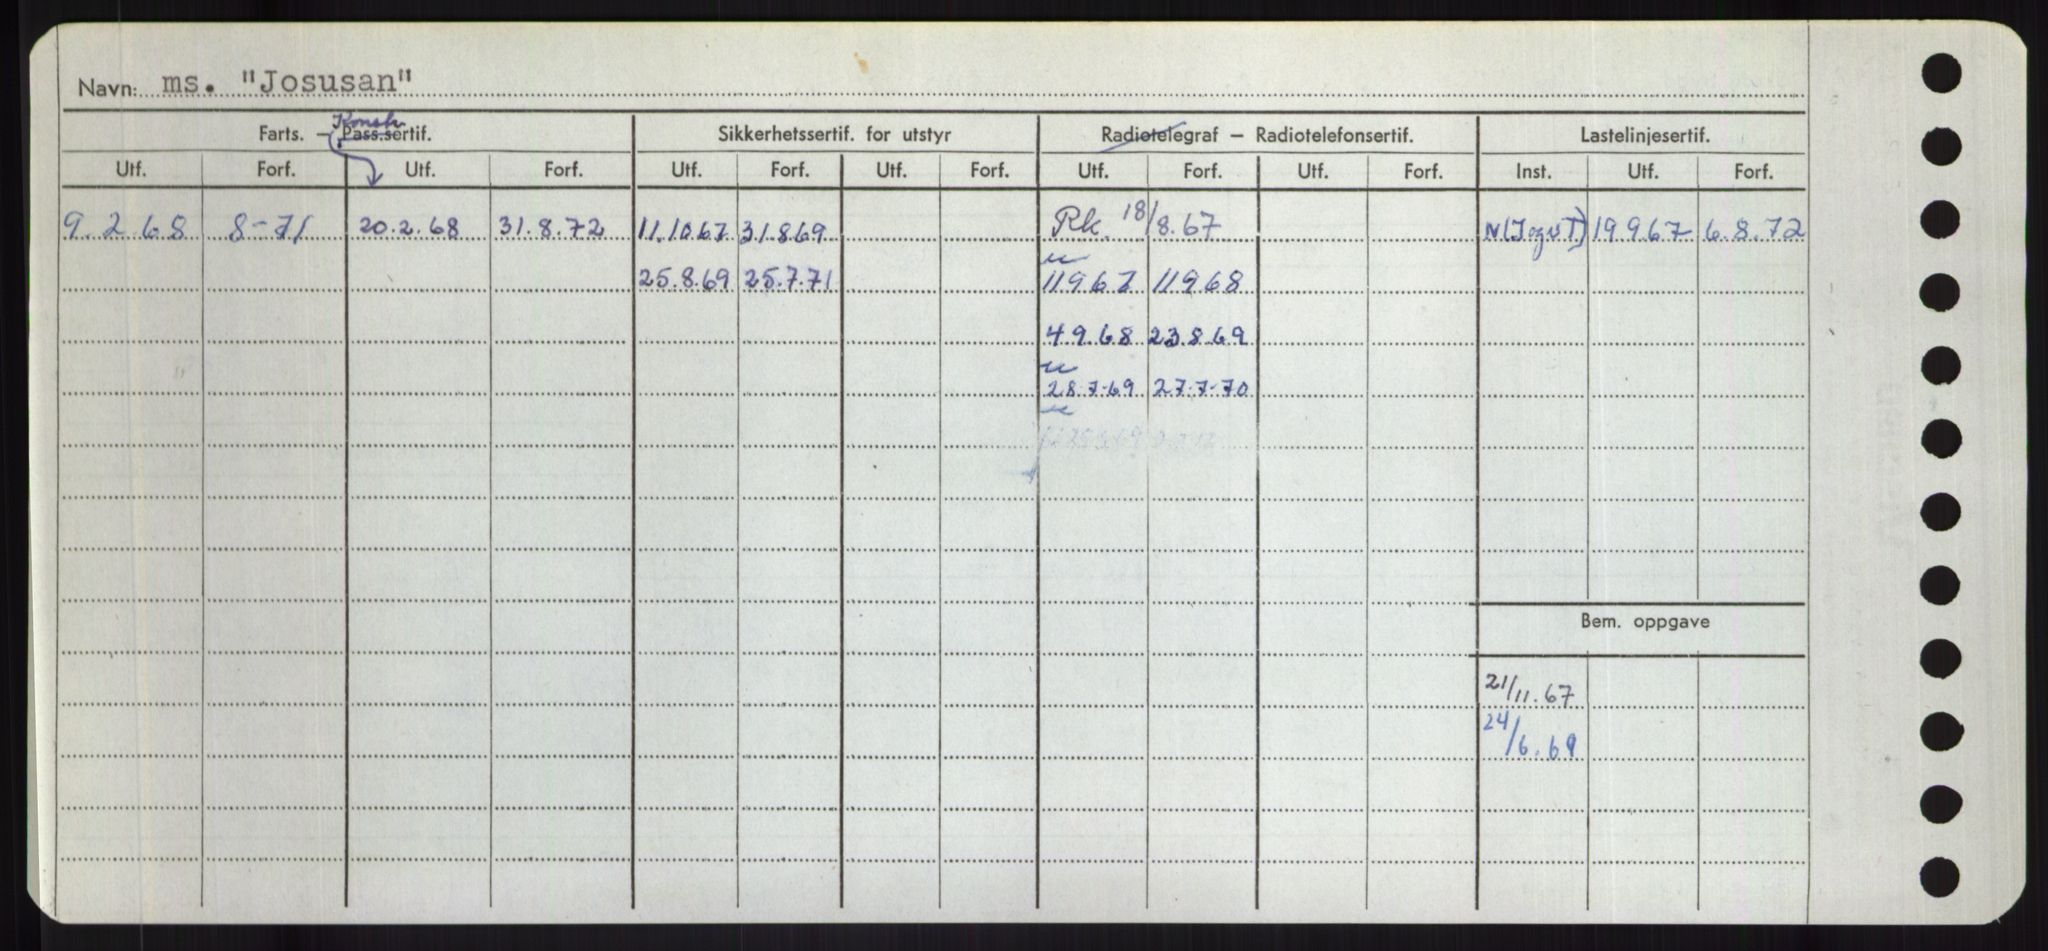 Navn: ms. "Josusan"
Konstr.
Farts. – Pass.sertif. Sikkerhetssertif. for utstyr Radiotelegraf – Radiotelefonsertif. Lastelinjesertif.
Utf. Forf. Utf. Forf. Utf. Forf. Utf. Forf. Utf. Forf. Utf. Forf. Inst. Utf. Forf.
9.2.68 8-71 20.2.68 31.8.72 11.10.67 31.8.69 Rk. 18/8.67 N(J og v T) 19967 6.8.72
25.8.69 25.7.71 11967 11968
49.68 23.8.69
28.7-69 27-7-70
Bem. oppgave
21/11.67
24/6.69